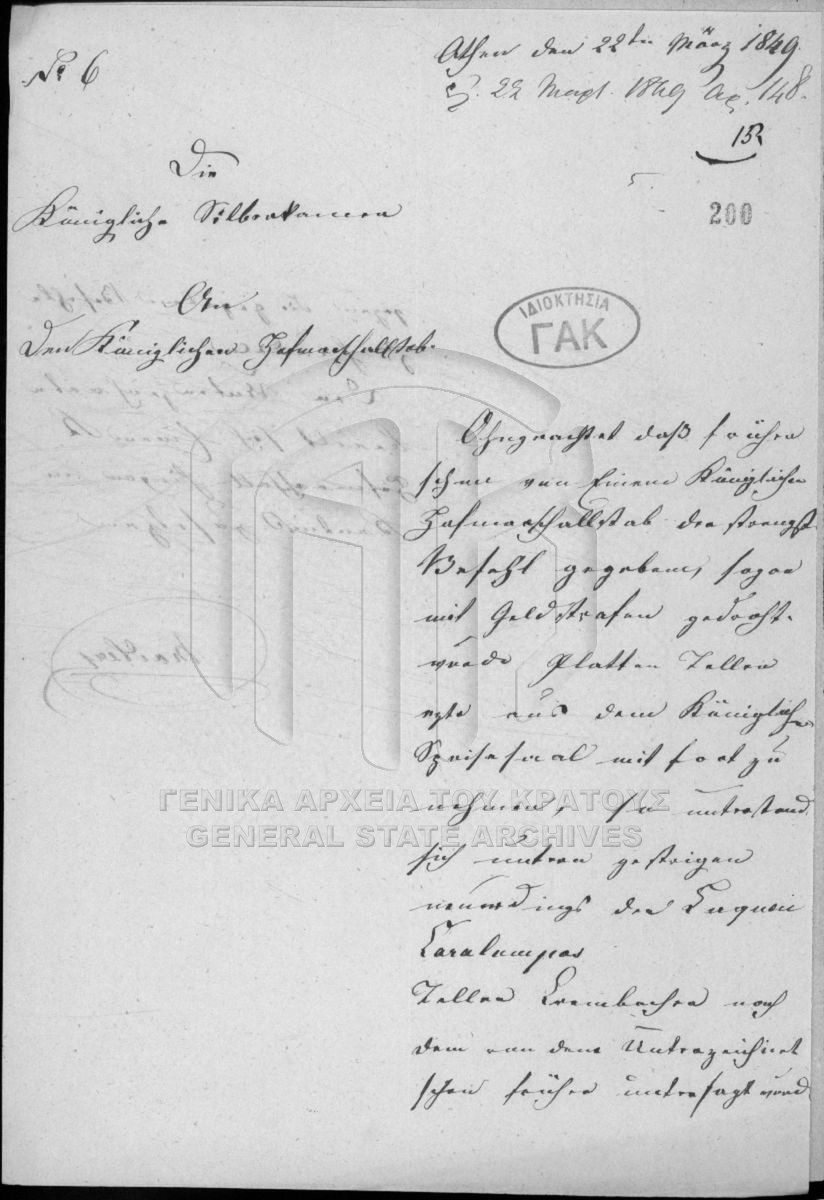 No 6
Athen den 22ten März 1849.
22 Μαρτ. 1849 αρ. 148.
15
200
Die
Königliche Silberkammer
An
Den Königlichen Hofmarschallstab.
ΙΔΙΟΚΤΗΣΙΑ
ΓΑΚ
Ohngeachtet daß früher
schon von Einem Königlichen
Hofmarschallstab der strengste
Befehl gegeben, sogar
mit Geldstrafen gedroht
wurde Platten Teller
aus dem Königlichen
Speisesaal mit fort zu
nehmen, so unterstand
sich unterm gestrigen
neuerdings der Laquai
Caralampos
Teller nach
dem von dem Unterzeichnet
schon früher untersagt word
ΓΕΝΙΚΑ ΑΡΧΕΙΑ ΤΟΥ ΚΡΑΤΟΥΣ
GENERAL STATE ARCHIVES